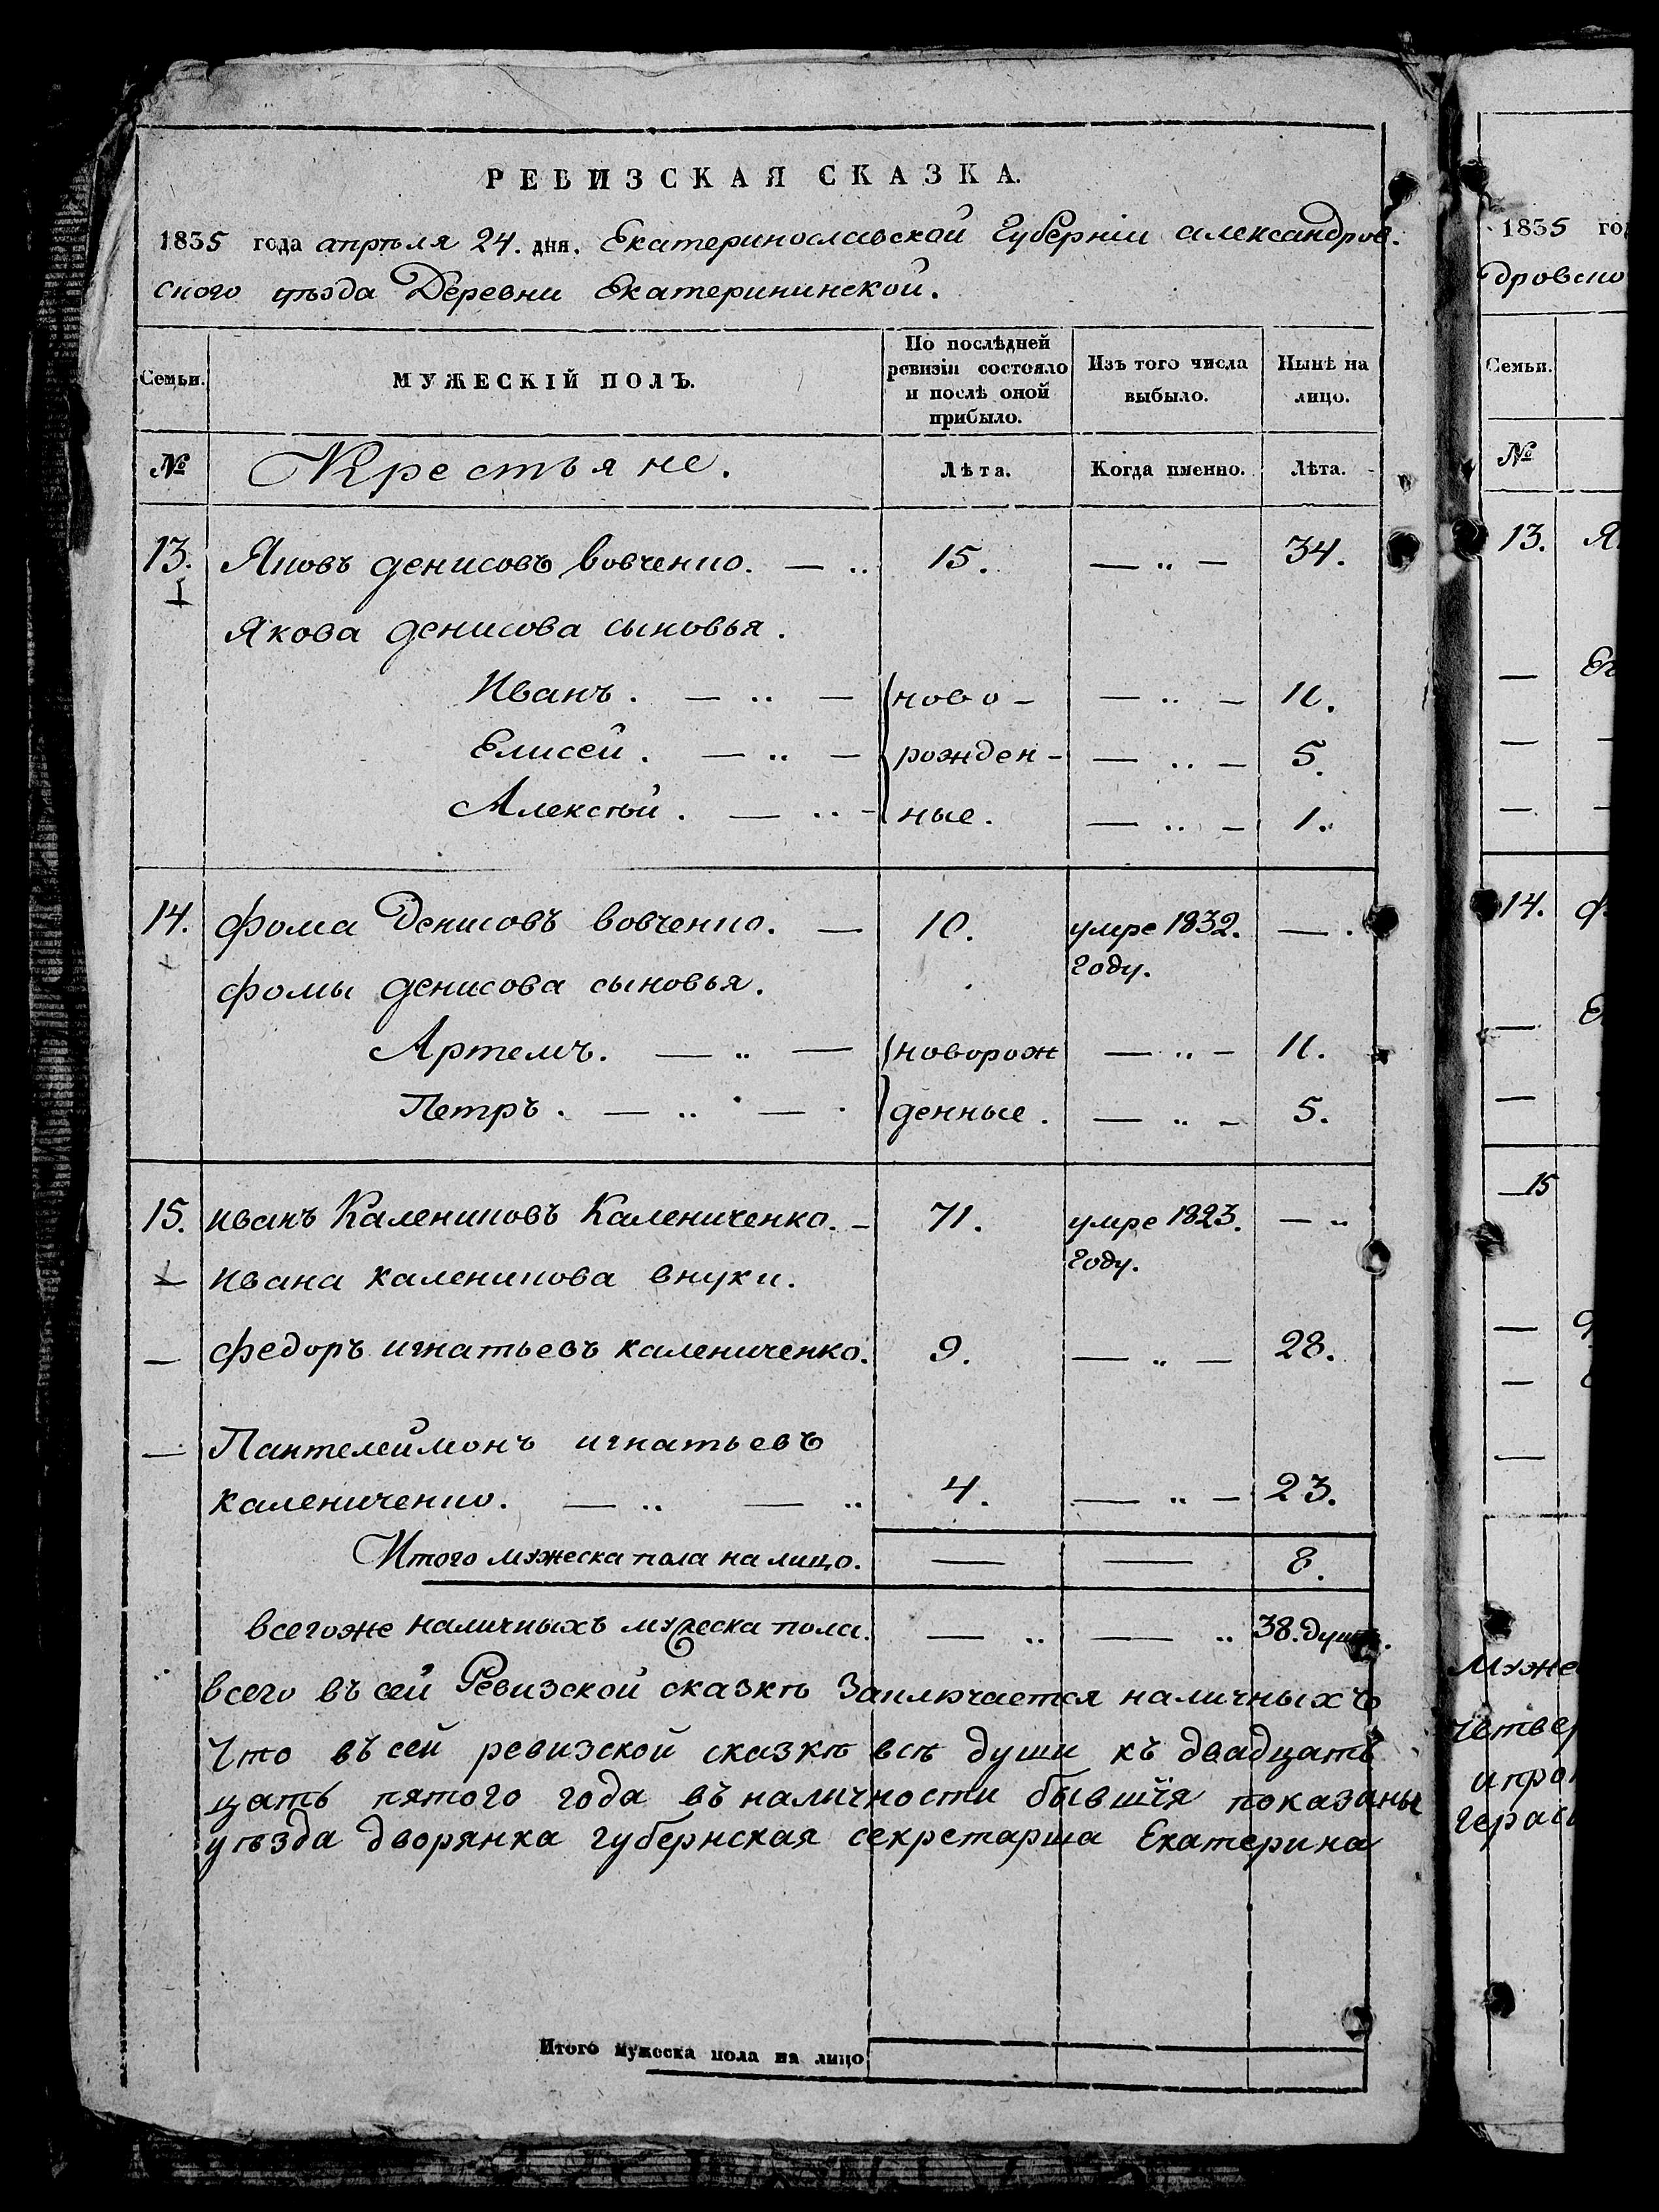 РЕВИЗСКАЯ СКАЗКА.
1835 года апрѣля 24. дня. Екатеринославской Губерніи александров-
ского уѣзда Деревни Екатерининской.
Семьи. МУЖЕСКІЙ ПОЛЪ. По послѣдней ревизіи состояло и послѣ оной прибыло. Изъ того числа выбыло. Нынѣ на лицо.
№ Крестьяне. Лѣта. Когда именно. Лѣта.
13. Яковъ денисовъ вовченко. — „ 15. — „ — 34.
Якова денисова сыновья.
Иванъ. — „ — ново- — „ — 11.
Елисей. — „ — рожден- — „ — 5.
Алексѣй. — „ - ные. — „ — 1.
14. Фома Денисовъ вовченко. — 10. умре 1832. — .
году.
фомы денисова сыновья.
Артемъ. — „ — новорож — „ — 11.
Петръ. — „ — денные. — „ — 5.
15. иванъ Калениковъ Калениченко. - 71. умре 1823. — „
году.
ивана каленикова внуки.
— федоръ игнатьевъ калениченко. 9. — „ — 28.
— Пантелеймонъ игнатьевъ
калениченко. — „ — „ 4. — „ — 23.
Итого мужеска пола на лицо. — — 8.
всегоже наличныхъ мужеска пола. — „ — „ 38. душъ.
всего въ сей Ревизской сказкѣ Заключается наличныхъ
Что въ сей ревизской сказкѣ всѣ души къ двадцать
цать пятого года въ наличности бывшія показаны
уѣзда дворянка губернская секретарша Екатерина
Итого мужеска пола на лицо
1835 год
дровско
Семьи.
№
13. Я
14. Ф
15
Муже
четвер